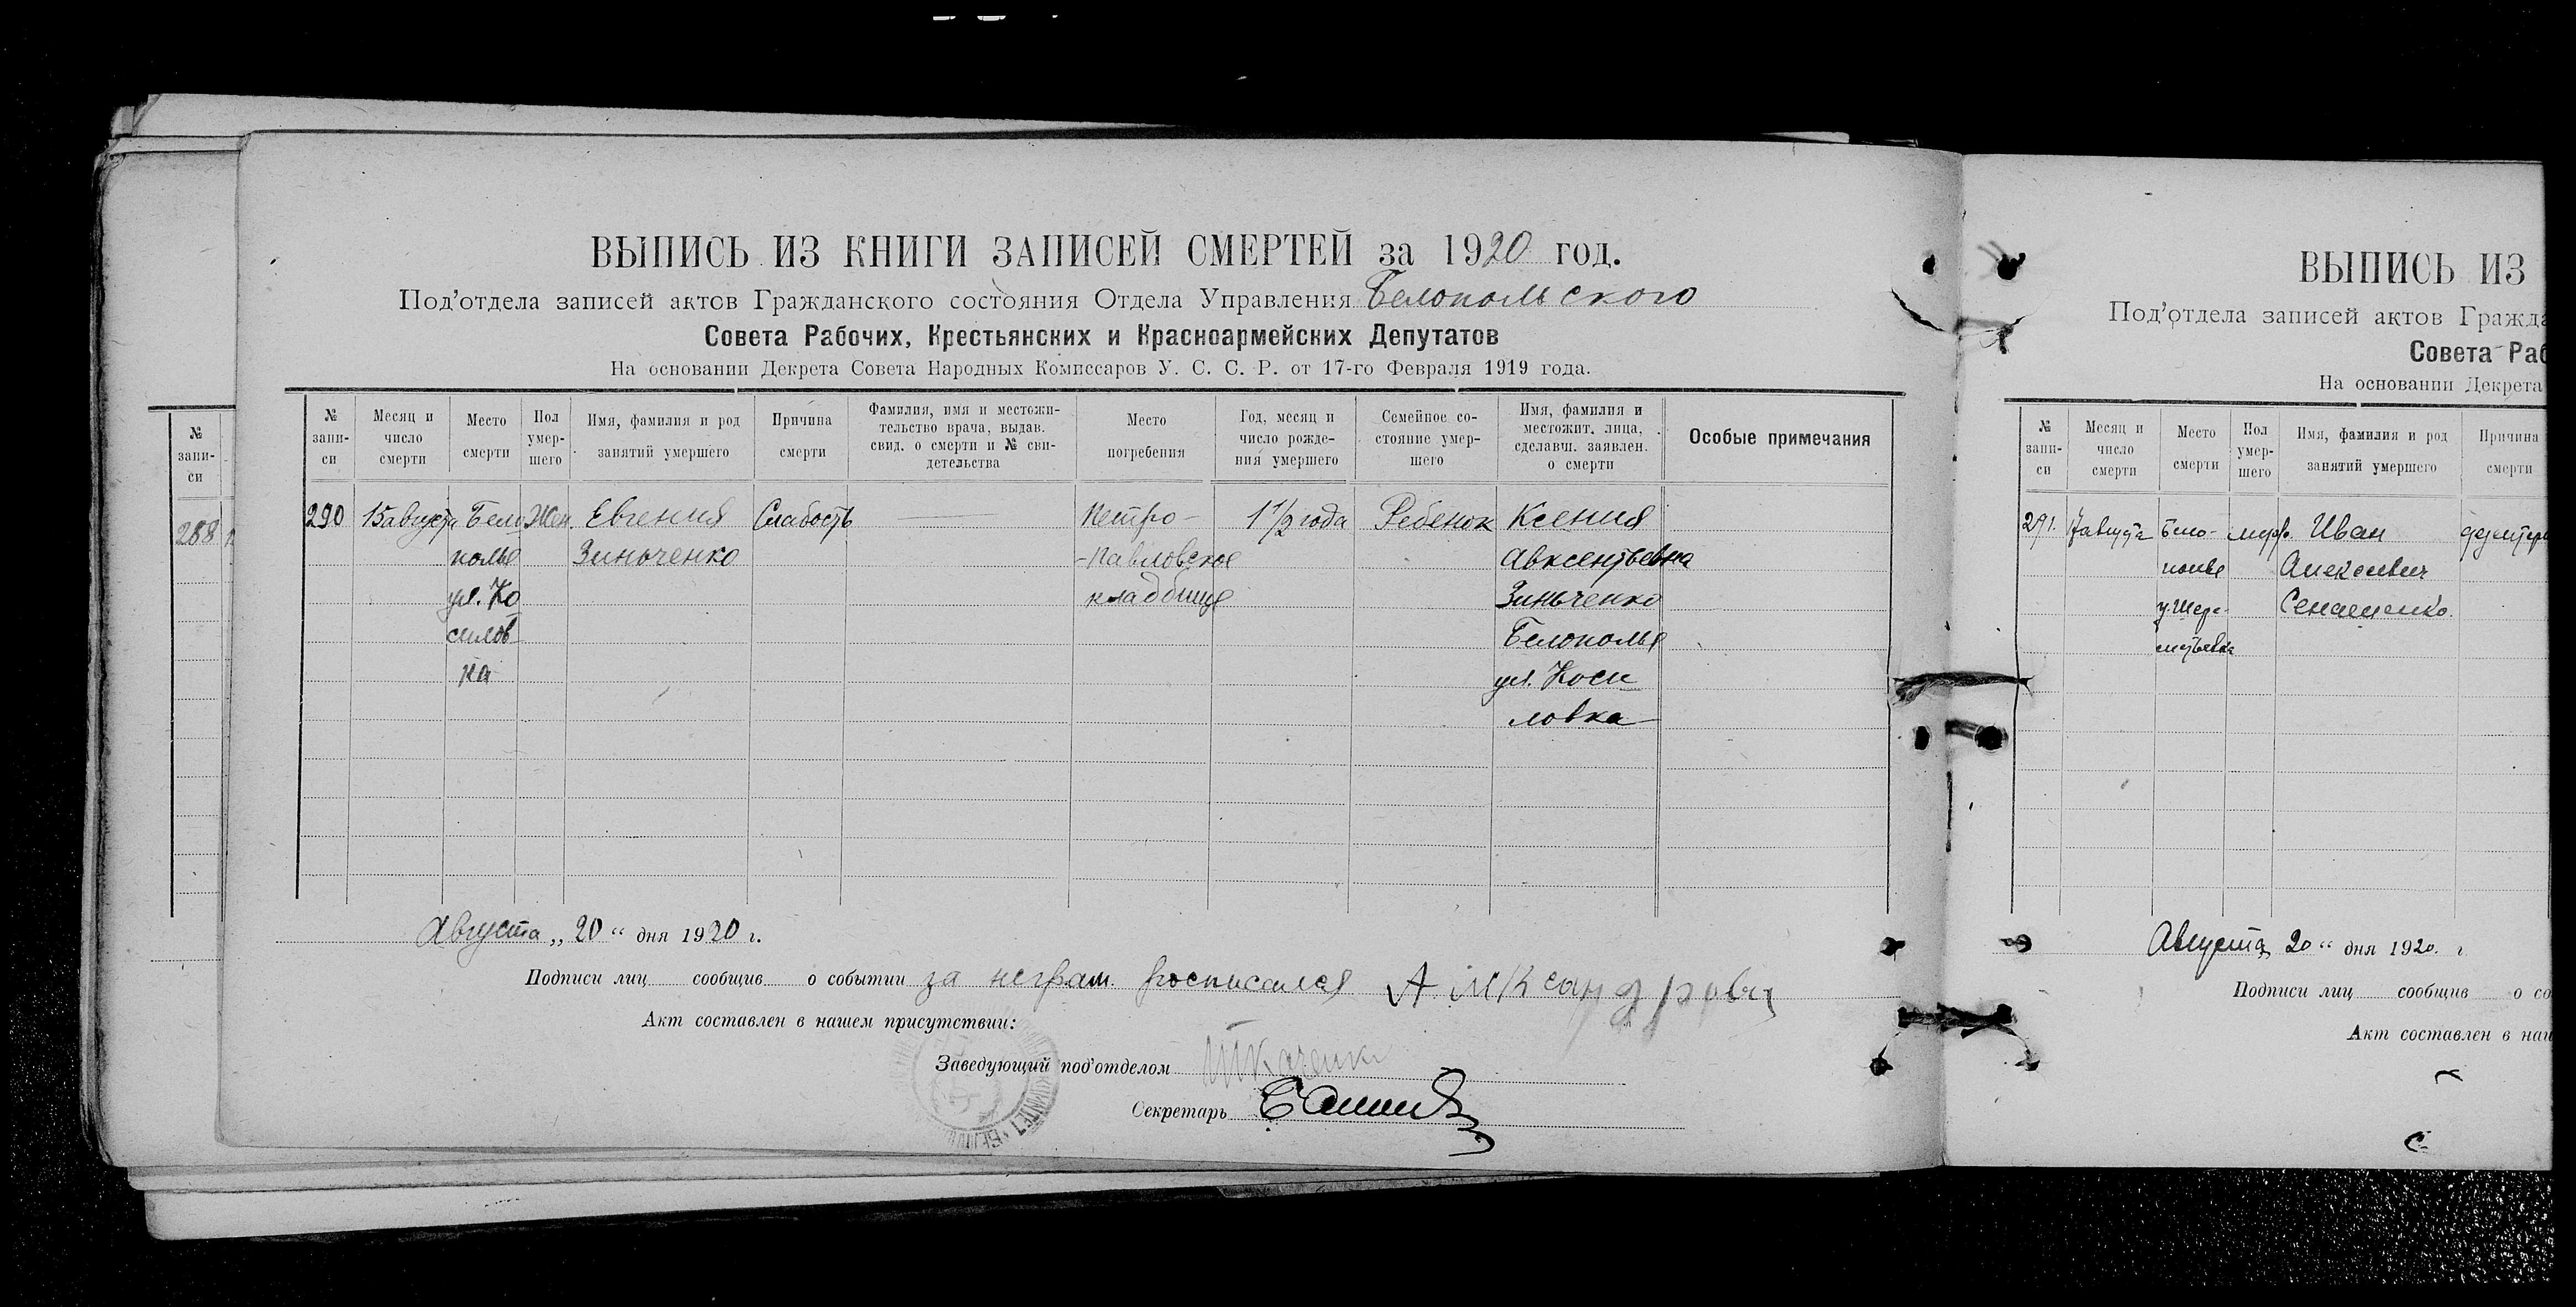 ВЫПИСЬ ИЗ КНИГИ ЗАПИСЕЙ СМЕРТЕЙ за 1920 год.
Под'отдела записей актов Гражданского состояния Отдела Управления Белопольского
Совета Рабочих, Крестьянских и Красноармейских Депутатов
На основании Декрета Совета Народных Комиссаров У. С. С. Р. от 17-го Февраля 1919 года.
№ запи-си
Месяц и число смерти
Место смерти
Пол умер-шего
Имя, фамилия и род занятий умершего
Причина смерти
Фамилия, имя и местожи-тельство врача, выдав. свид. о смерти и № сви-детельства
Место погребения
Год, месяц и число рожде-ния умершего
Семейное со-стояние умер-шего
Имя, фамилия и местожит. лица, сделавш. заявлен. о смерти
Особые примечания
290 15 августа Бело Жен Евгения Слабость Петро- 1 1/2 года Ребенок Ксения
полья Зинченко -Павловское Авксентьевна
ул. Ко кладбище Зинченко
силов Белополья
ка ул. Коси
ловка
Августа „20“ дня 1920 г.
Подписи лиц сообщив о событии за неграм. росписался Александрова
Акт составлен в нашем присутствии:
Заведующий под'отделом Ткаченко
Секретарь
№ запи-си
288
ВЫПИСЬ ИЗ
Под'отдела записей актов Гражда
Совета Раб
На основании Декрета
№ запи-си
Месяц и число смерти
Место смерти
Пол умер-шего
Имя, фамилия и род занятий умершего
Причина смерти
291. 7 августа Бело- Иван
полье Алексеевич
Августа 20“ дня 1920. г
Подписи лиц сообщив о со
Акт составлен в наш